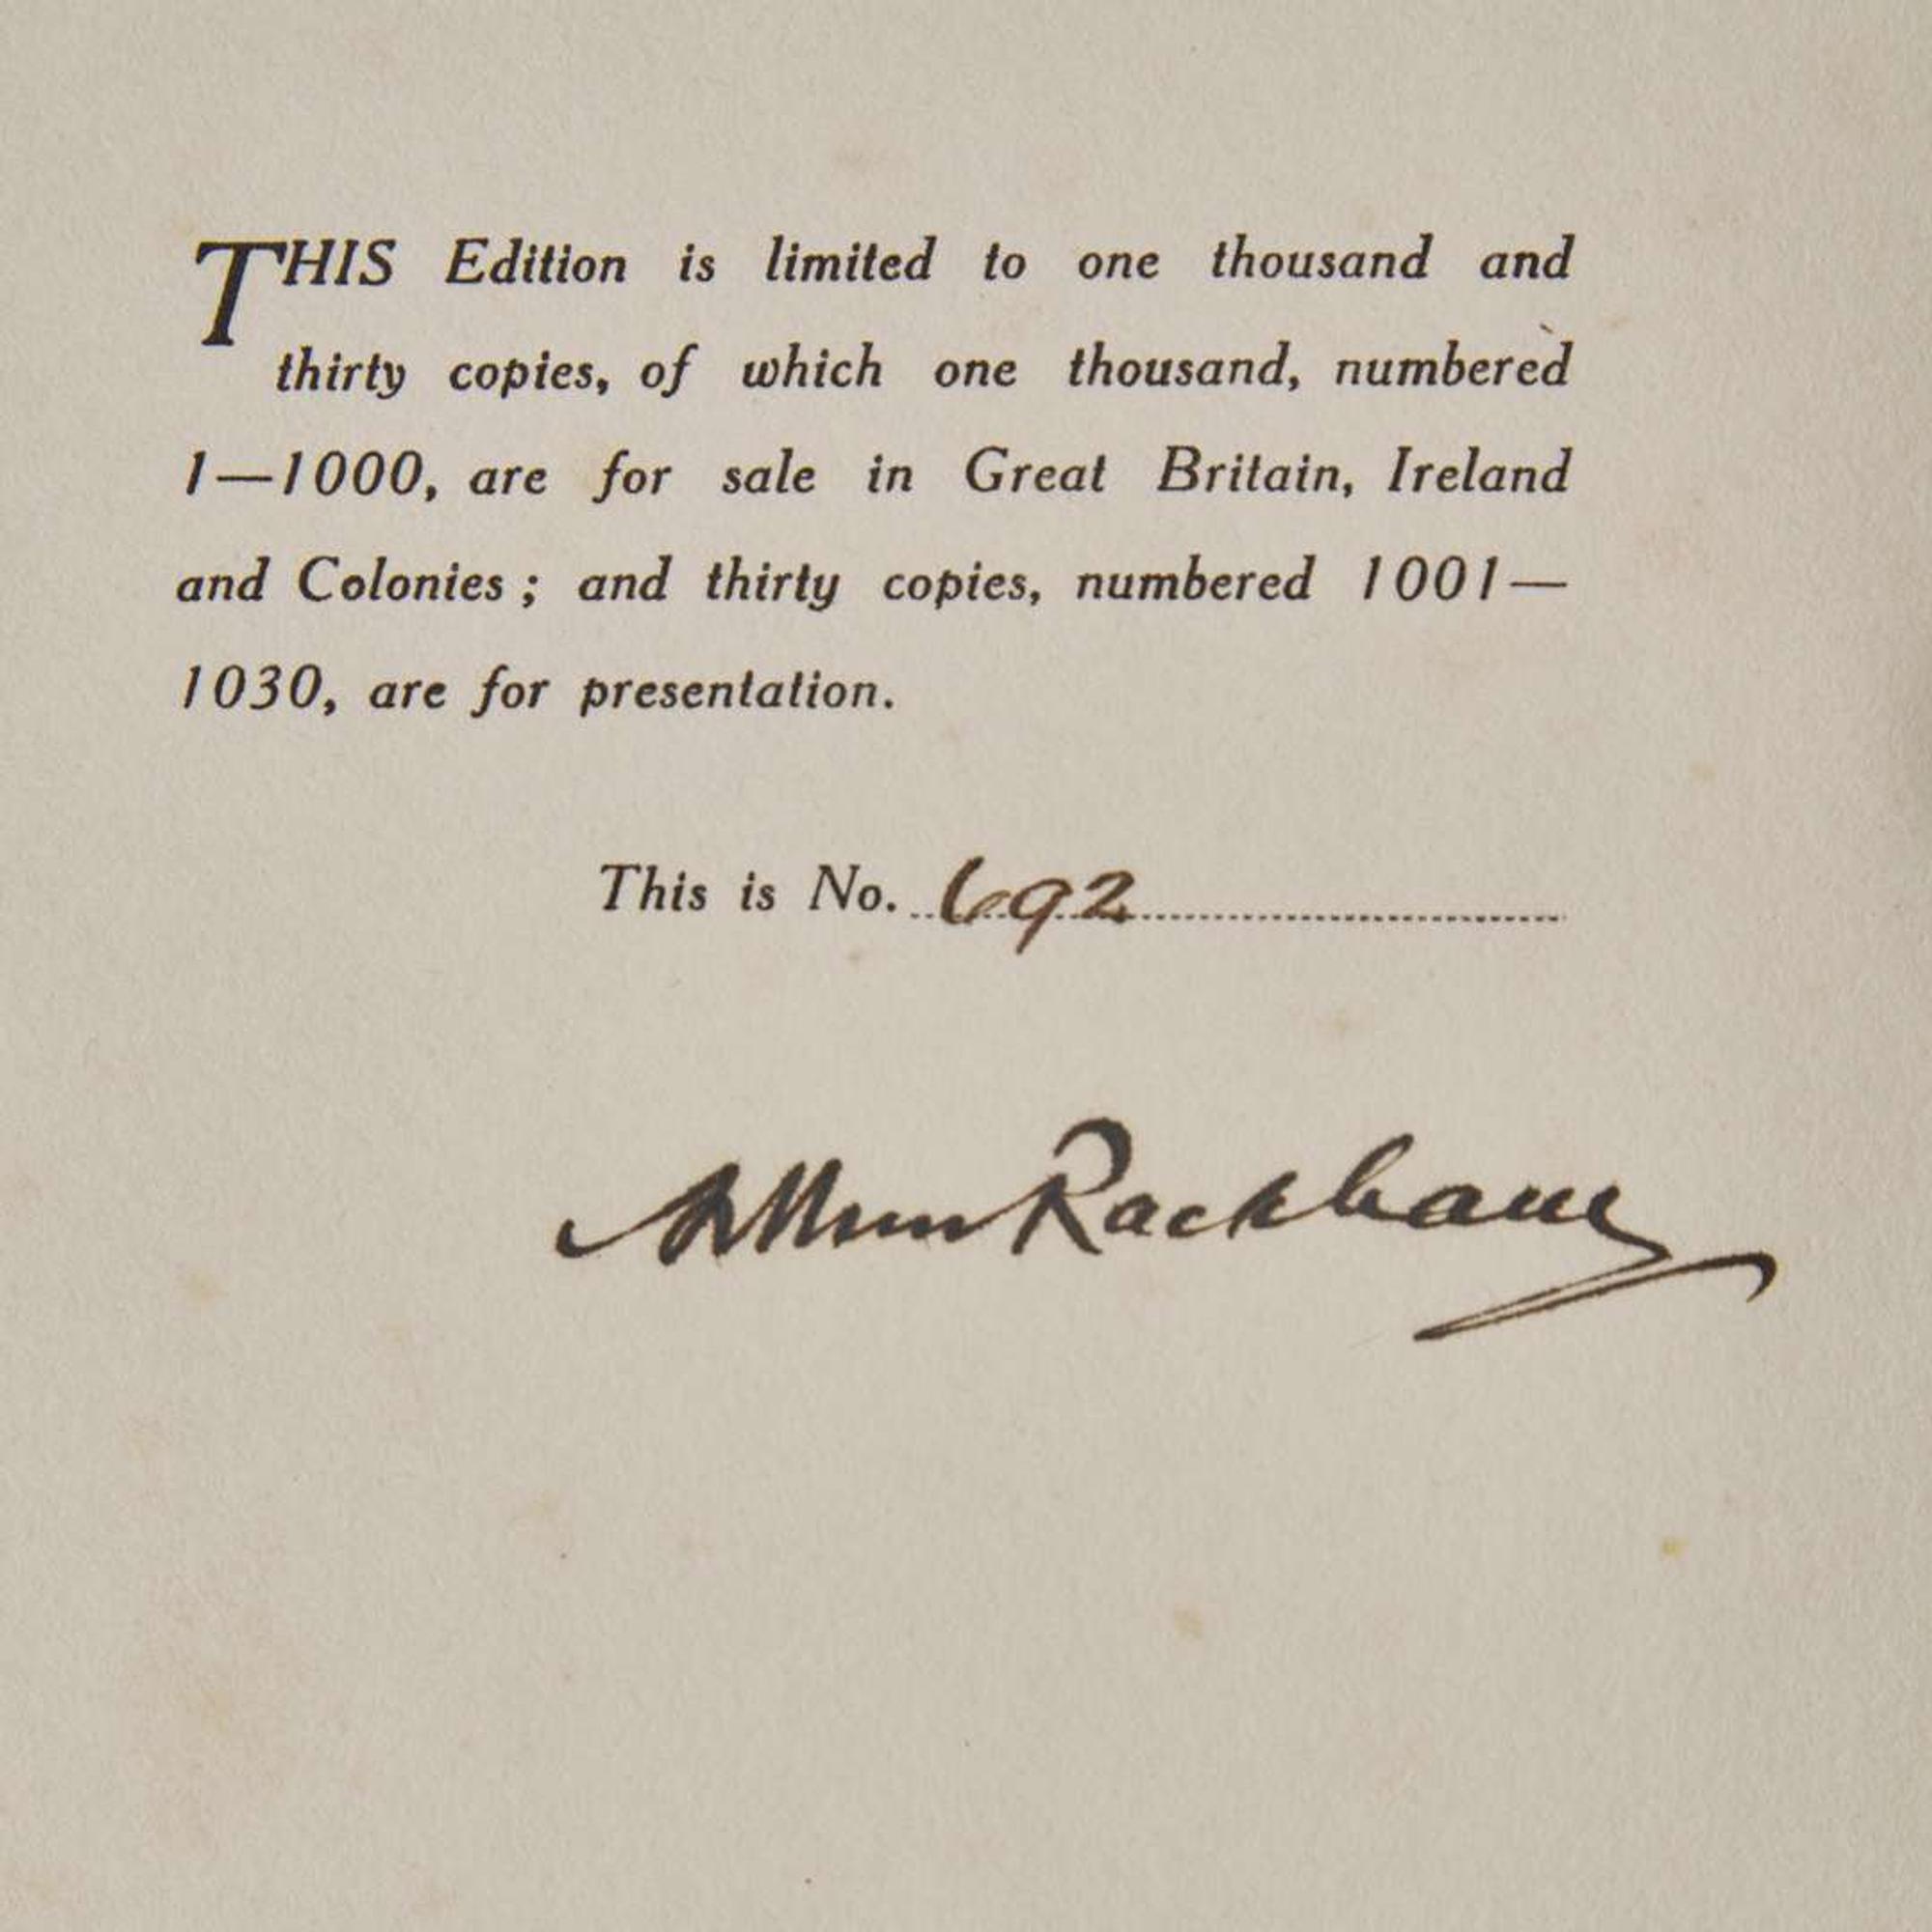 THIS Edition is limited to one thousand and
thirty copies, of which one thousand, numbered
1—1000, are for sale in Great Britain, Ireland
and Colonies ; and thirty copies, numbered 1001—
1030, are for presentation.
This is No. 692
Arthur Rackham